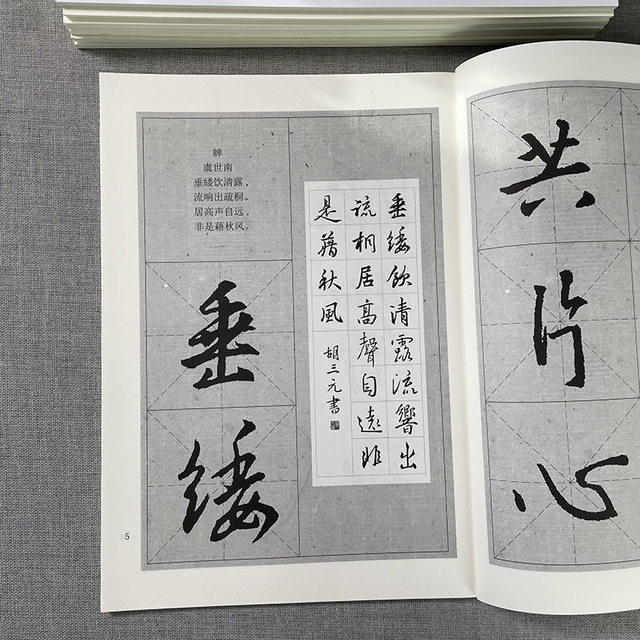 蝉
虞世南
垂緌饮清露，
流响出疏桐。
居高声自远，
非是藉秋风。
垂緌飲清露流響出
疏桐居高聲自遠非
是藉秋風
胡三元書
垂
緌
5
共
片
心